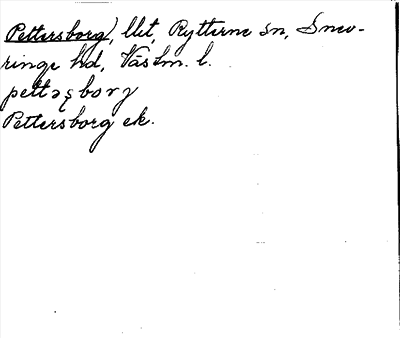 Pettersborg), llit, Rytterne sn, Snev-
ringe hd, Västm. l.
pettəʂborj
Pettersborg ek.